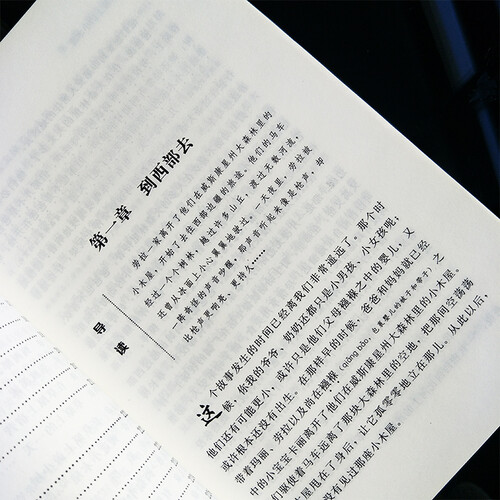 第一章 到西部去
导读
劳拉一家离开了他们在威斯康星州大森林里的
小木屋，开始了去往西部边疆的旅途。他们的马车
经过一个个树林，越过许多山丘，渡过无数河流，
还曾从冰面上小心翼翼地驶过。一天夜里，劳拉被
一阵奇怪的声音吵醒，那声音听起来像是枪声，却
比枪声更响亮、更持久……
这个故事发生的时间已经离我们非常遥远了。那个时
候，你我的爷爷、奶奶还都只是小男孩、小女孩呢；
他们还有可能更小，或许只是他们父母襁褓之中的婴儿，又
或许根本还没有出生。在那样早的时候，爸爸和妈妈就已经
带着玛丽、劳拉以及尚在襁褓（qiǎng bǎo，包裹婴儿的被子和带子）之
中的小宝宝卡丽离开了他们在威斯康星州大森林里的小木屋。
们驱使着马车远离了那块大森林里的空地，把那间空荡荡
屋甩在了身后，让它孤零零地立在那儿。从此以后，
没有见过那座小木屋。